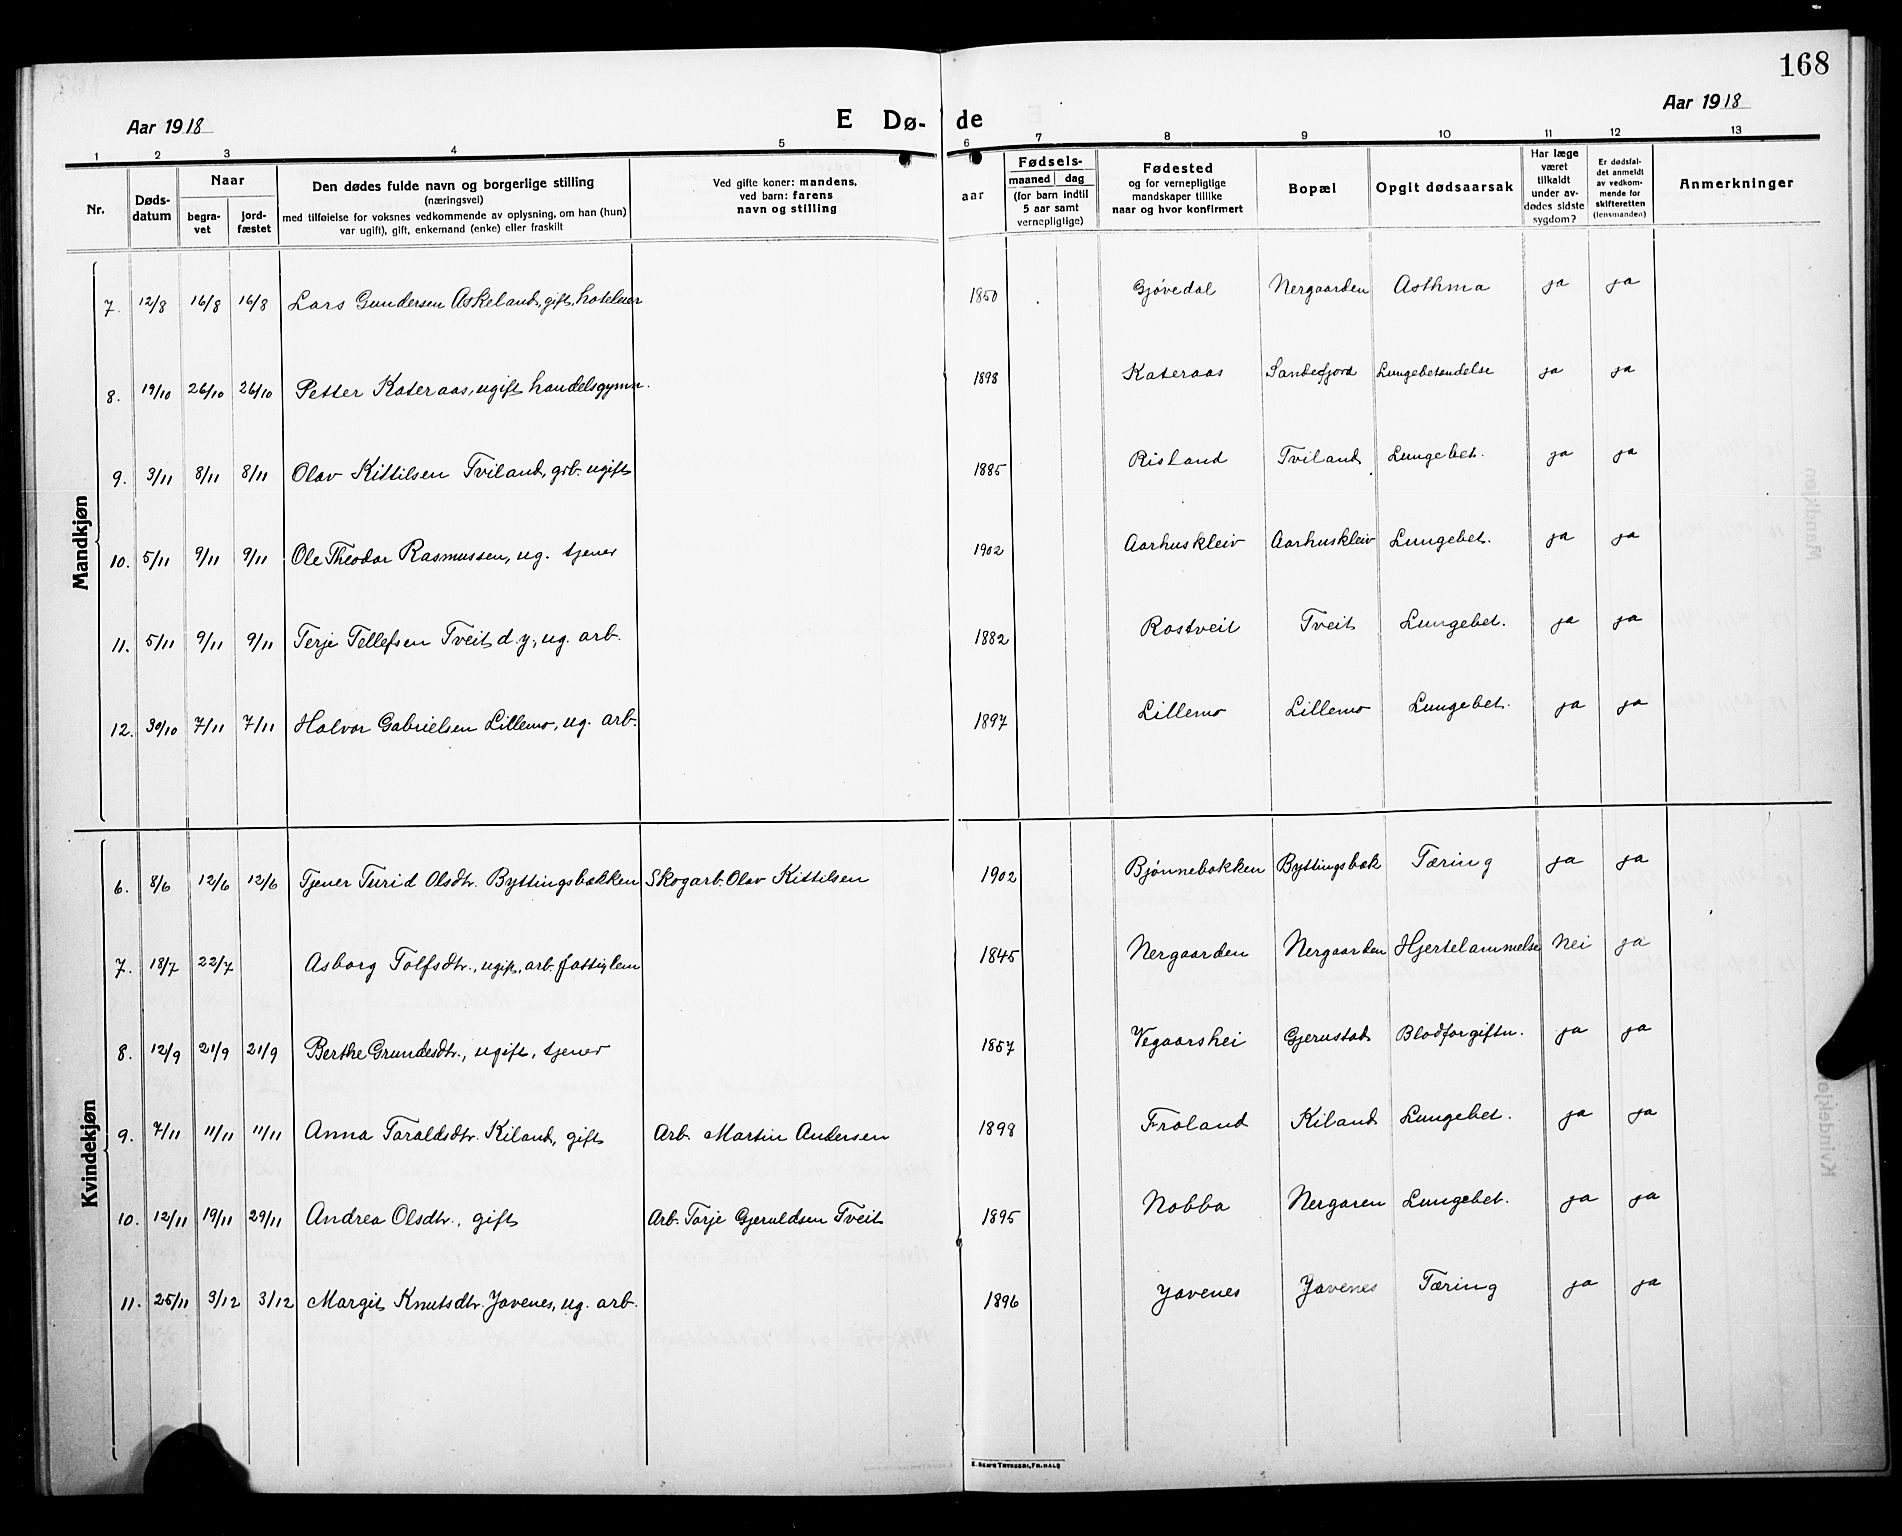 168
Aar 1918
E Dø- de
Aar 1918
1 2 3 4 5 6 7 8 9 10 11 12 13
Nr.
Døds-
datum
Naar
begra-
vet
jord-
fæstet
Den dødes fulde navn og borgerlige stilling
(næringsvei)
med tilføielse for voksnes vedkommende av oplysning, om han (hun)
var ugift), gift, enkemand (enke) eller fraskilt
Ved gifte koner: mandens,
ved barn: farens
navn og stilling
aar
Fødsels-
maaned dag
(for barn indtil
5 aar samt
vernepligtige)
Fødested
og for vernepligtige
mandskaper tillike
naar og hvor konfirmert
Bopæl
Opgit dødsaarsak
Har læge
været
tilkaldt
under av-
dødes sidste
sygdom?
Er dødsfal-
det anmeldt
av vedkom-
mende for
skifteretten
(lensmanden)
Anmerkninger
Mandkjøn
7. 12/8 16/8 16/8 Lars Gundersen Askeland, gift, hoteleier 1850 Gjøvedal Nergaarden Asthma ja ja
8. 19/10 26/10 26/10 Petter Kateraas, ugift handelsgymn. 1898 Kateraas Sandefjord Lungebetændelse ja ja
9. 3/11 8/11 8/11 Olav Kittilsen Tviland, grb. ugift 1885 Risland Tviland Lungebet. ja ja
10. 5/11 9/11 9/11 Ole Theodor Rasmussen, ug. tjener 1902 Aarhuskleiv Aarhuskleiv Lungebet. ja ja
11. 5/11 9/11 9/11 Terje Tellefsen Tveit d.y., ug. arb. 1882 Rostveit Tveit Lungebet. ja ja
12. 30/10 7/11 7/11 Halvor Gabrielsen Lillemo, ug. arb. 1897 Lillemo Lillemo Lungebet. ja ja
Kvindekjøn
6. 8/6 12/6 12/6 Tjener Turid Olsdtr. Byttingsbakken Skogarb. Olav Kittilsen 1902 Bjønnebakken Byttingsbak Tæring ja ja
7. 18/7 22/7 Asborg Tolfsdtr., ugift, arb. fattiglem 1845 Nergaarden Nergaarden Hjertelammelse Nei ja
8. 12/9 21/9 21/9 Berthe Grundesdtr., ugift, tjener 1857 Vegaarshei Gjerustad Blodforgiftn. ja ja
9. 7/11 11/11 11/11 Anna Taraldsdtr. Kiland, gift Arb. Martin Andersen 1898 Froland Kiland Lungebet. ja ja
10. 12/11 19/11 29/11 Andrea Olsdtr., gift Arb. Torje Gjeruldsen Tveit 1895 Nobba Nergaren Lungebet. ja ja
11. 25/11 3/12 3/12 Margit Knutsdtr. Jovenes, ug. arb. 1896 Jovenes Jovenes Tæring ja ja
E. SEM'S TRYKKERI, FR.HALD